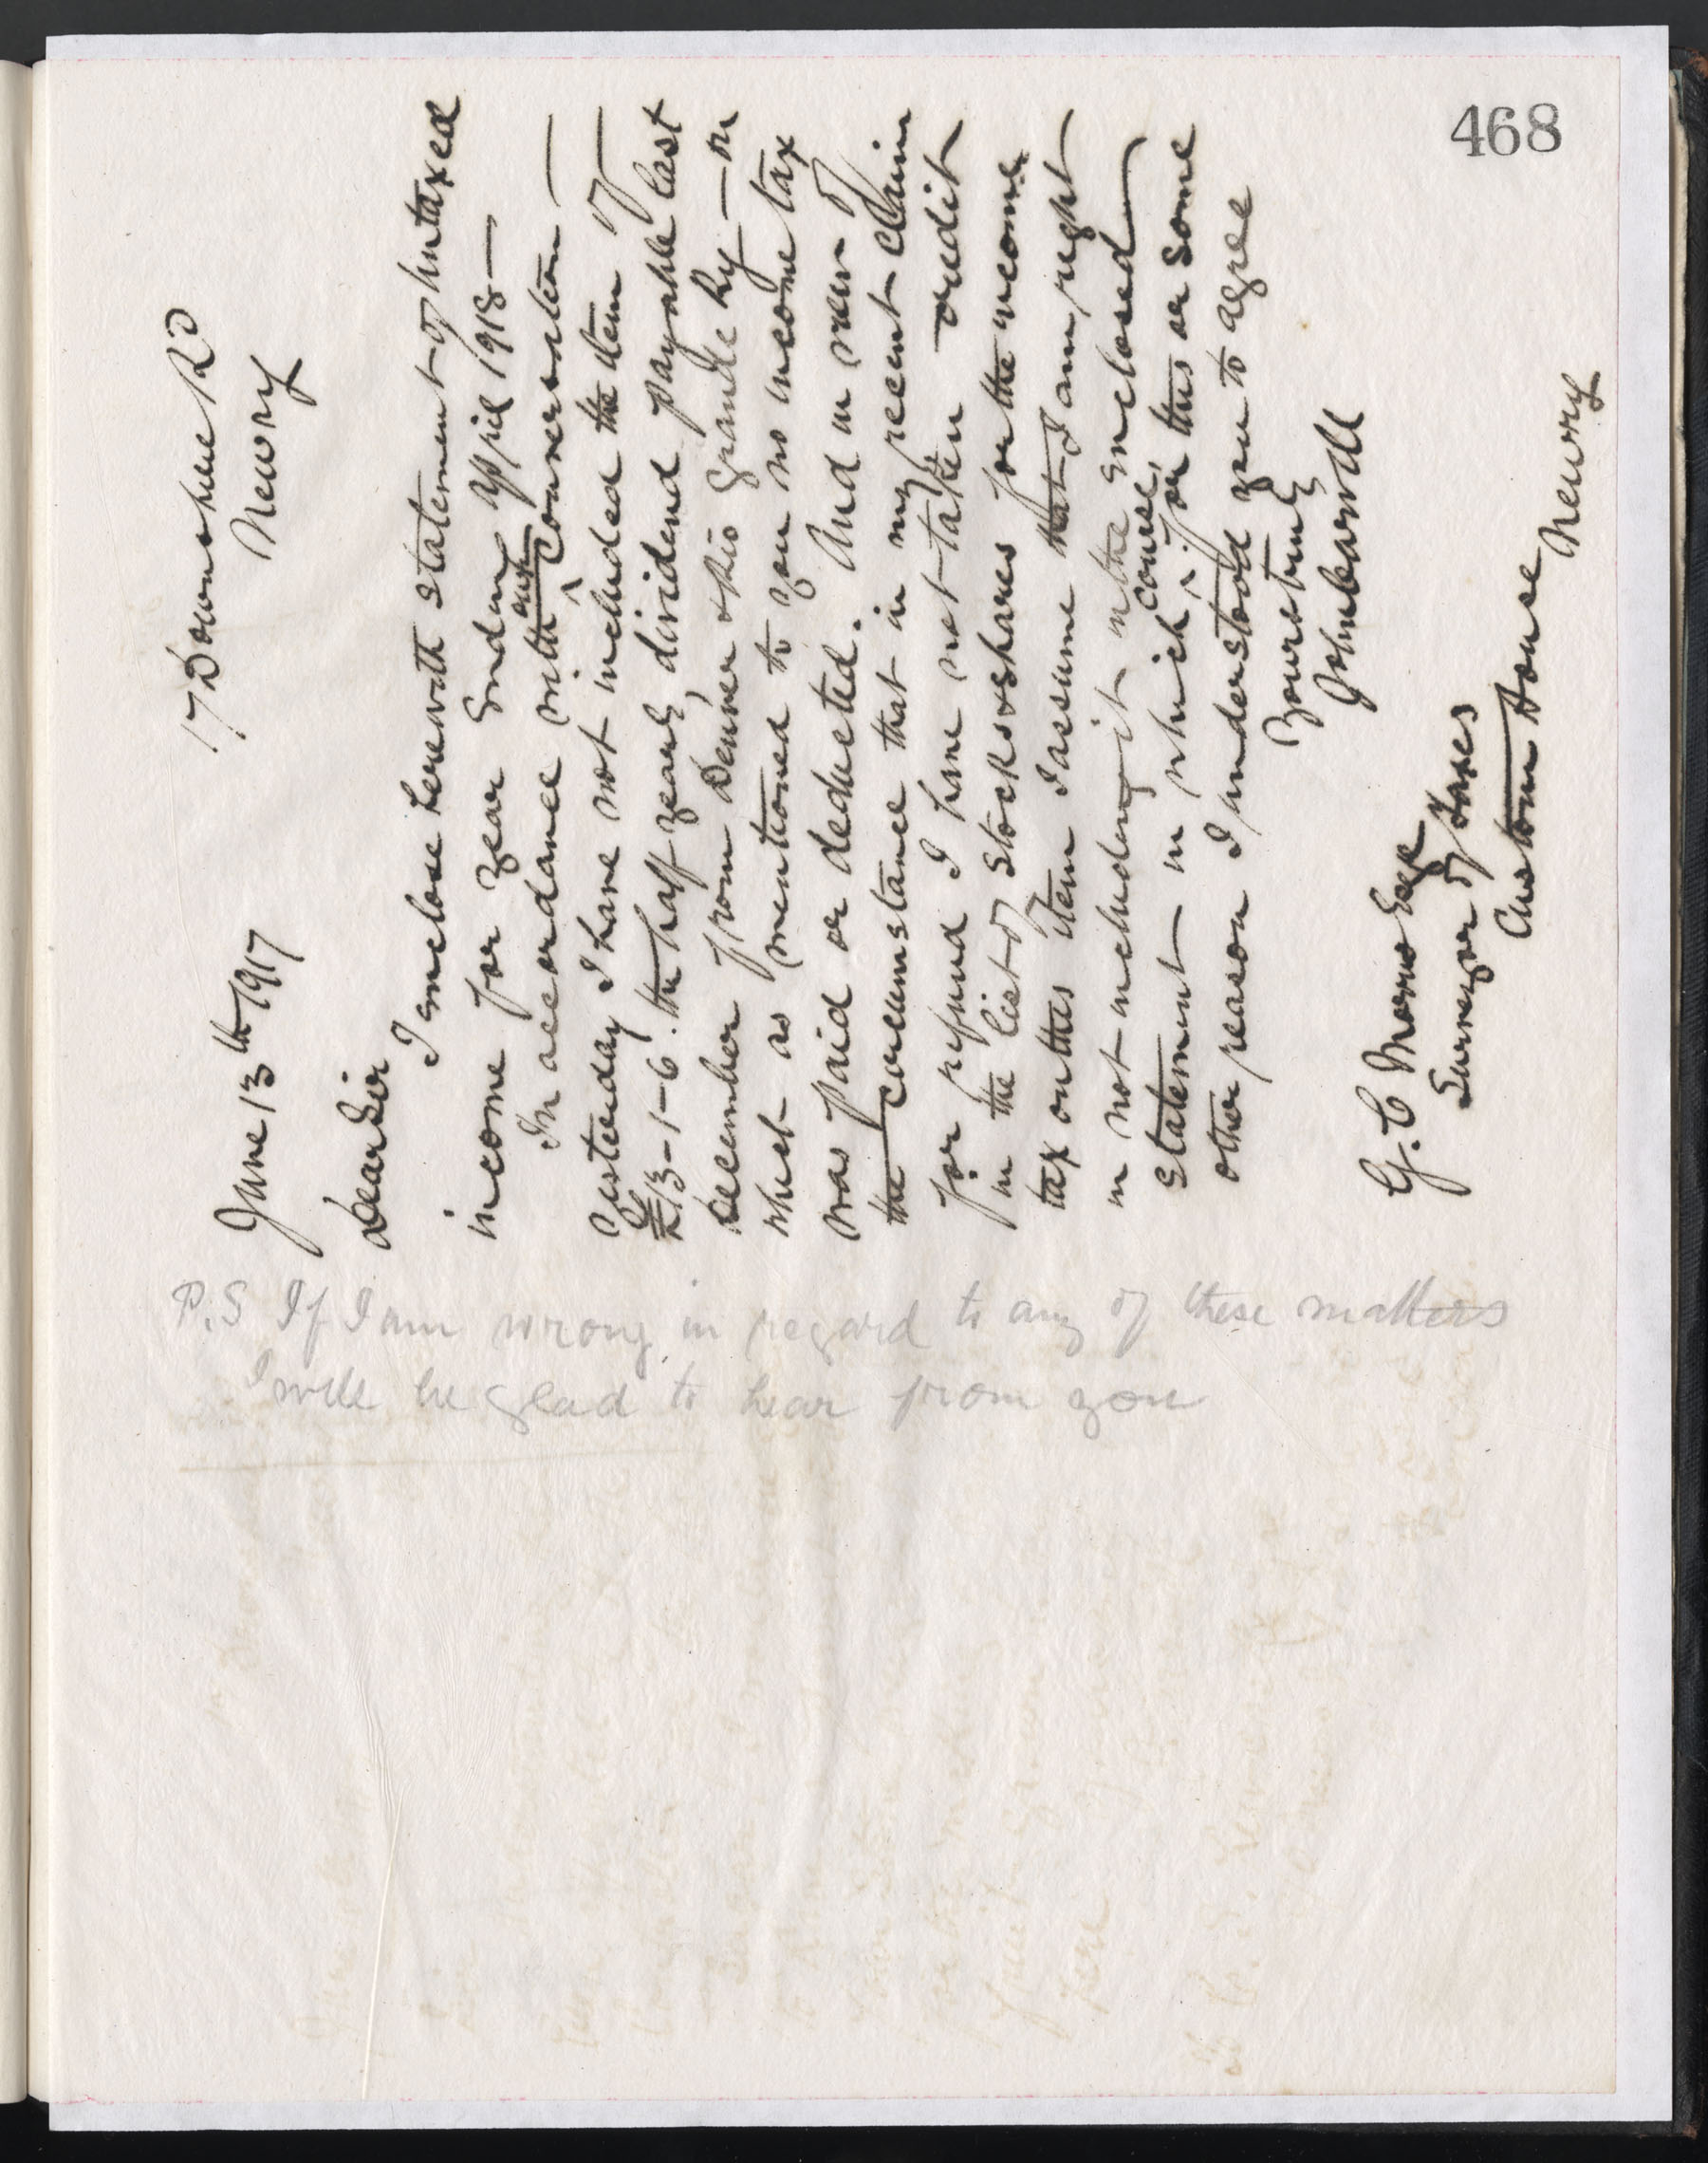 468
17 Downshire Rd
Newry
June 13th 1917
Dear Sir
I enclose herewith statement of untaxed
income for year ending April 1918 —
In accordance with our conversation —
yesterday I have not included the item of —
£13-1-6. the half yearly dividend payable last
December from Denver & Rio Grande Ry — on
which as mentioned to you no income tax
was paid or deducted. And in view of
the circumstance that in my recent claim
for refund I have not taken credit
in the list of stocks & shares for the income
tax on this item I assume that I am right
in not including it in the enclosed
statement in which course, for this or some
other reason I understood you to agree
Yours truly
G. C. Morris Esqr
Surveyor of Taxes
Custom House
Newry
P.S If I am wrong in regard to any of these matters
I will be glad to hear from you